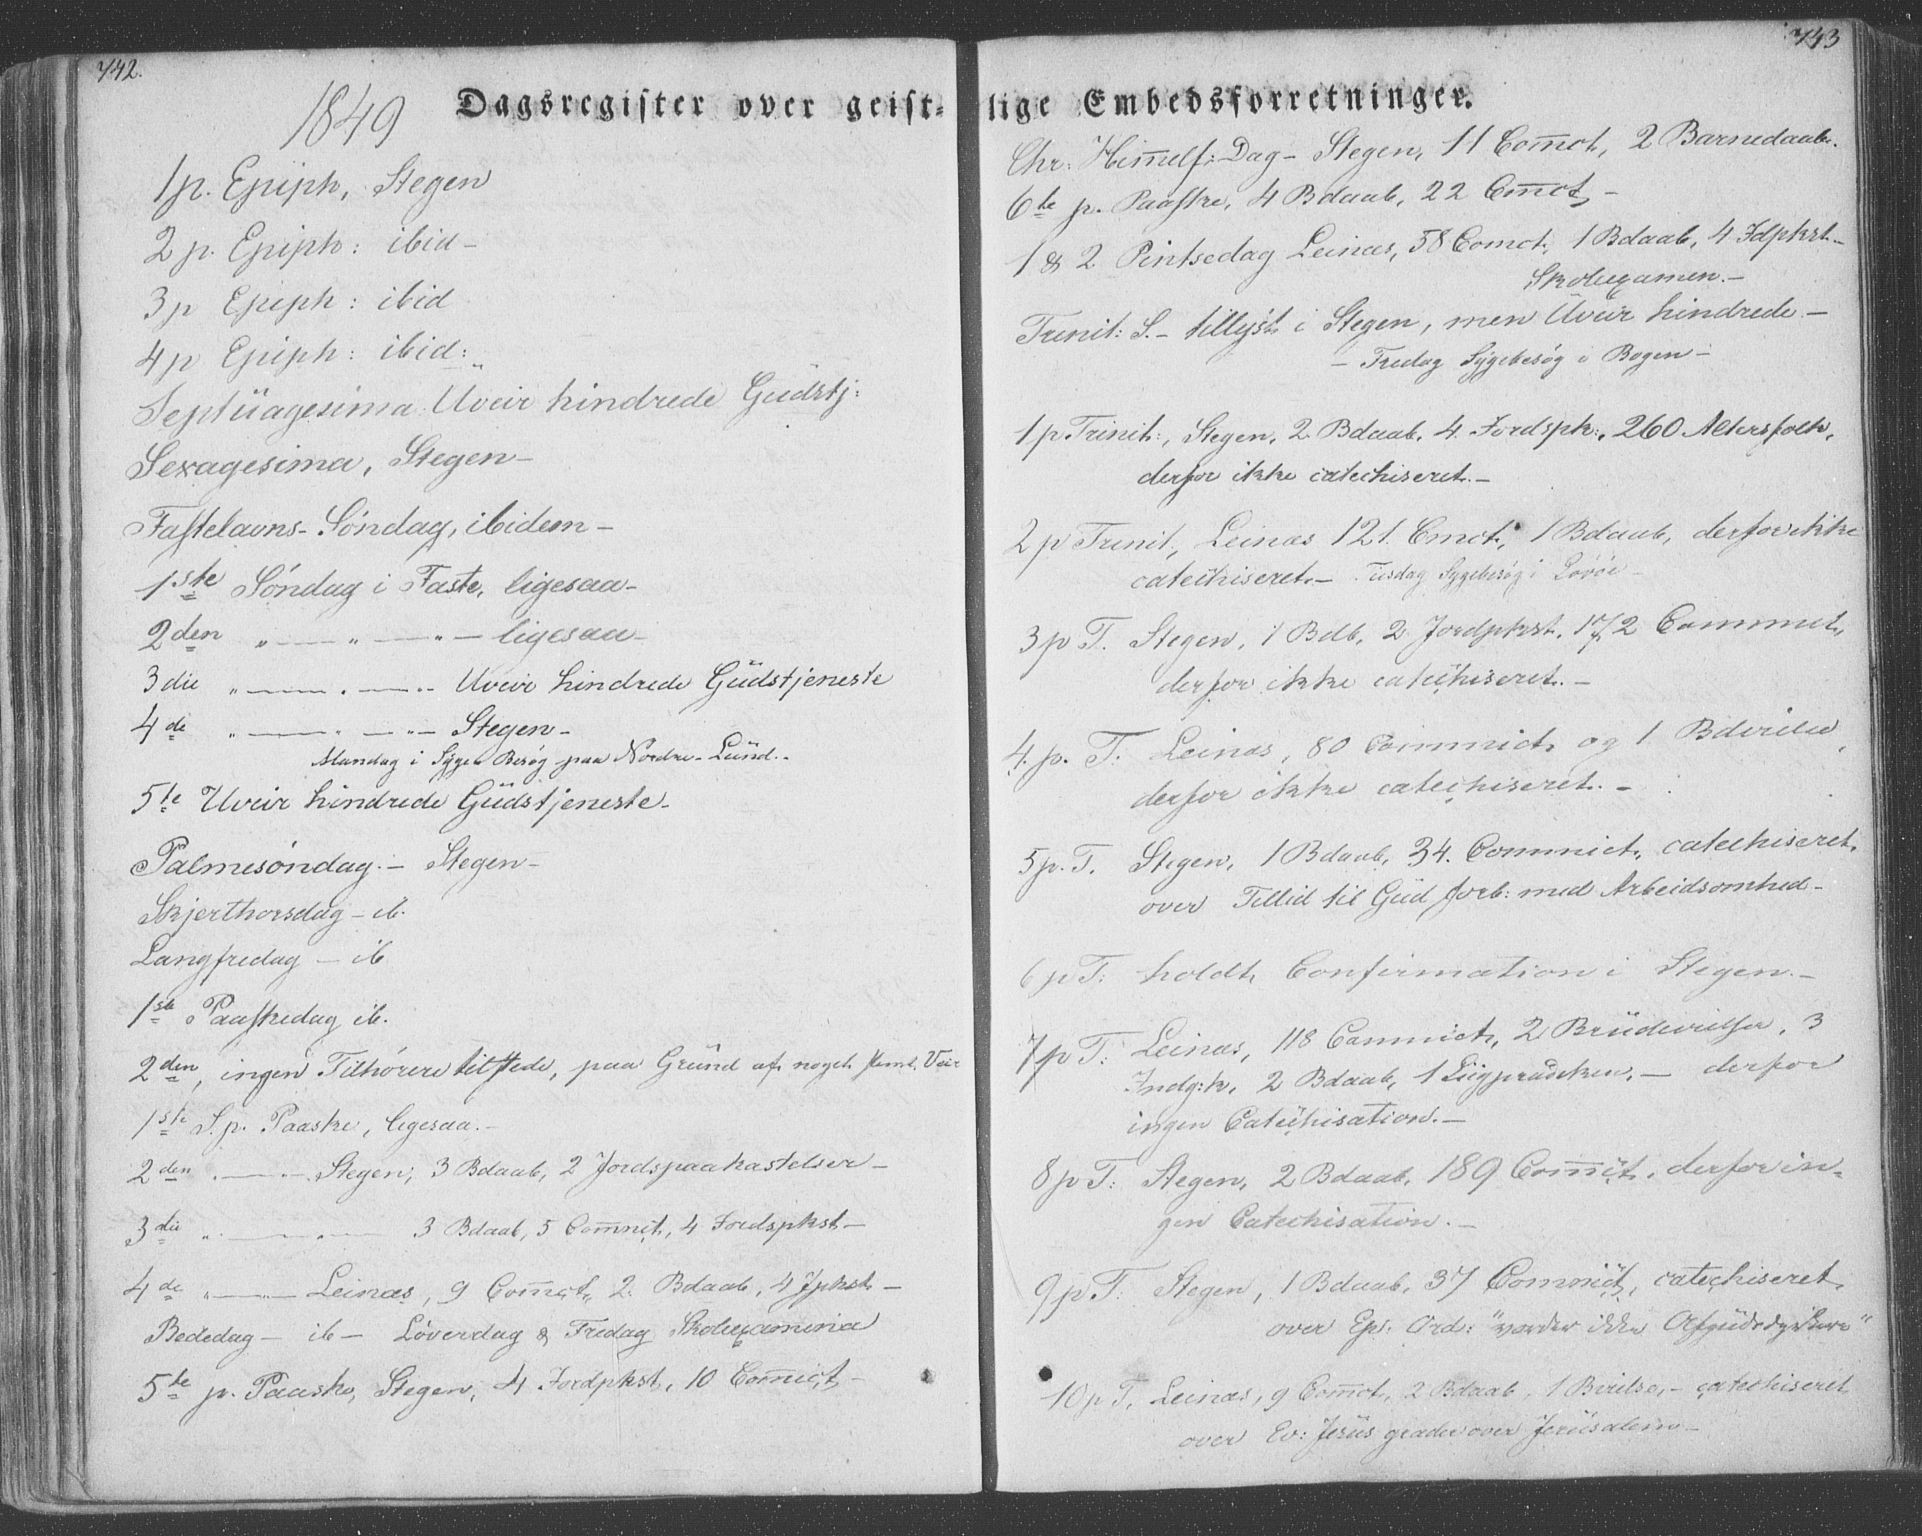 742.
1849
Dagsregister over geist-
1 p. Epiph, Stegen
2 p. Epiph: ibid -
3 p Epiph: ibid
4 p Epiph: ibid:
Septüagesima Uveir hindrede Güdstj:
Sexagesima, Stegen -
Fastelavns-Søndag, ibidem -
1ste Søndag i Faste, ligesaa -
2den " — " — " — ligesaa -
3die " — " — " Uveir hindrede Güdstjeneste
4de " — " — " — Stegen -
Mandag i Syge Besøg paa Nordre-Lünd. -
5te Uveir hindrede Güdstjeneste -
Palmesøndag. - Stegen -
Skjerthorsdag - ib.
Langfredag - ib
1ste Paaskedag ib.
2den, ingen Tilhørere tilstede, paa Gründ af noget Veir
1ste S. p. Paaske, ligesaa. -
2den " — " Stegen, 3 Bdaab, 2 Jordspaakastelser -
3die " — " — 3 Bdaab, 5 Comnict, 4 Jordspkst -
4de " — " — Leinæs, 9 Comct, 2 Bdaab, 4 Jpkst -
Bededag - ib - Løverdag & Fredag Skolexamina
5te p. Paaske, Stegen, 4 Jordpkst, 10 Comict -
743
lige Embedsforretninger.
Chr. Himelf: Dag - Stegen, 11 Comct, 2 Barnedaab.
6te p. Paaske, 4 Bdaab, 22 Cmct, -
1 & 2 Pintsedag Leinæs, 58 Comct. 1 Bdaab, 4 Jdpkst -
Skolexamen. -
Trinit: S. - tillyst i Stegen, men Uveir hindrede -
- Fredag Sygebesøg i Bogen -
1 p Trinit:, Stegen, 2 Bdaab, 4 Jordspk:, 260 Altersfolk,
derfor ikke catechiseret. -
2 p Trinit, Leinæs 121. Cmct, 1 Bdaab, derfor ikke
catechiseret. - Tirsdag Sygebesøg i
3 p T. Stegen, 1 Bdb, 2 Jordpkst, 172 Commct,
derfor ikke catechiseret. -
4. p. T. Leinæs, 80 Commict og 1 Bdvielse,
derfor ikke catechiseret. -
5 p. T. Stegen, 1 Bdaab, 34. Commict, catechiseret.
over Tillid til Gud forb: med Arbeidsomhed -
6 p T: holdt Confirmation i Stegen. -
7 p T: Leinæs, 118 Commict, 2 Brüdevielser, 3
Indg:k, 2 Bdaab, 1 Liigprædiken. - derfor
ingen Catechisation. -
8 p T: Stegen, 2 Bdaab, 189 Comict, derfor in-
gen Catechisation. -
9 p T: Stegen, 1 Bdaab, 37 Comnict, catechiseret
over Eps: Ord: "vorder ikke Afgüdsdyrkere"
10 p T. Leinæs, 9 Comct, 2 Bdaab, 1 Bvielse, - catechiseret
over Ev: Jesüs græder over Jerüsalem -